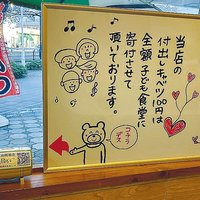 当店の
付出しキャベツ100円は
全額子ども食堂に
寄付させて
頂いております。
コチラ
デス